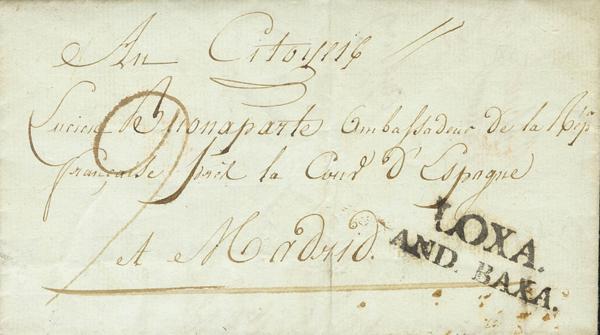 Au Citoyen
Lucien Buonaparte ambassadeur de la Rép
française près la Cour d'Espagne
et Madrid.
LOXA.
AND. BAXA.
9